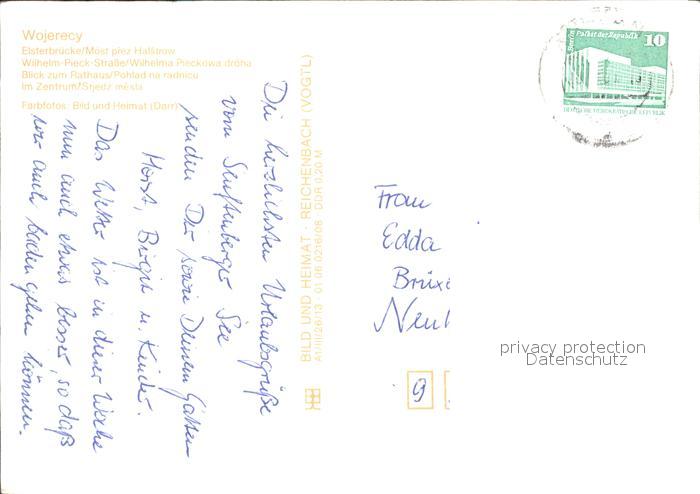 Wojerecy
Elsterbrücke/Most přez Halštrow
Wilhelm-Pieck-Straße/Wilhelma Pieckowa dróha
Blick zum Rathaus/Pohlad na radnicu
Im Zentrum/Srjedź města
Farbfotos: Bild und Heimat (Darr)
Die herzlichsten Urlaubsgrüße
vom Senftenberger See
senden Dir sowie Deinem Gatten
Horst, Birgit u. Kinder.
Das Wetter ist in dieser Woche
nun auch etwas besser, so daß
wir auch baden gehen können.
BILD UND HEIMAT · REICHENBACH (VOGTL)
A1/III/26/13 · 01 06 0216/08 · DDR 0,20 M
Berlin Palast der Republik
10
DEUTSCHE DEMOKRATISCHE REPUBLIK
Frau
Edda
Brüx
Neu
9
privacy protection
Datenschutz